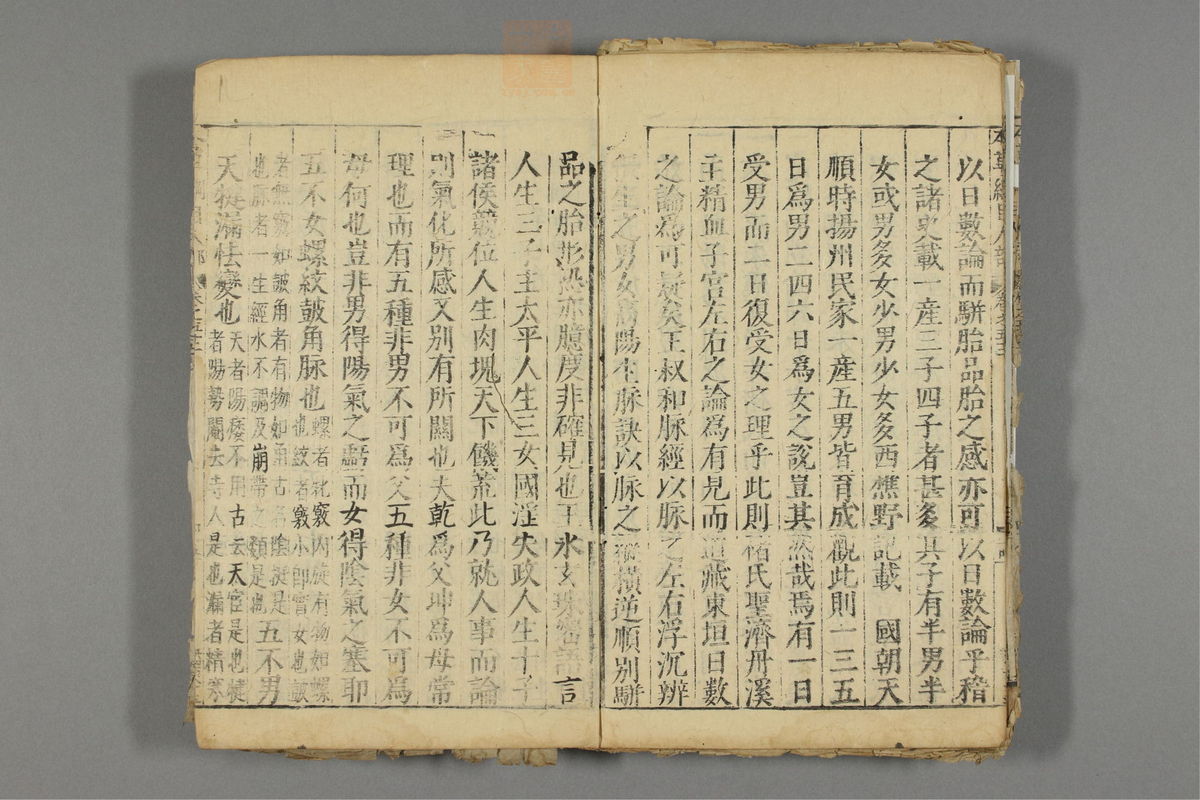 以日數論而駢胎品胎之感亦可以日數論乎稽
之諸史載一產三子四子者甚多其子有半男半
女或男多女少男少女多西樵野記載國朝天
順時揚州民家一產五男皆育成觀此則一三五
日爲男二四六日爲女之說豈其然哉焉有一日
受男而二日復受女之理乎此則褚氏聖濟丹溪
主精血子宮左右之論爲有見而道藏東垣日數
之論爲可疑矣王叔和脈經以脈之左右浮沉辨
生之男女高陽生脈訣以脈之縱橫逆順別駢
品之胎形恐亦臆度非確見也王氷玄珠密語言
人生三子主太平人生三女國淫失政人生十子
諸侯競位人生肉塊天下饑荒此乃就人事而論
則氣化所感又別有所關也夫乾爲父坤爲母常
理也而有五種非男不可爲父五種非女不可爲
母何也豈非男得陽氣之虧而女得陰氣之塞耶
五不女螺紋鼓角脈也螺者牝竅內旋有物如螺
也紋者竅小卽實女也鼓
者無竅如鼓角者有物如角古名陰挺是
也脈者一生經水不調及崩帶之類是也五不男
天犍漏怯變也天者陽痿不用古云天宦是也犍
者陽勢閹去寺人是也漏者精寒